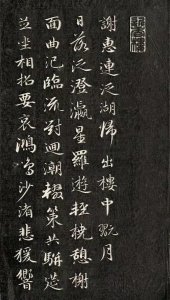 謝惠連泛湖歸出樓中翫月
日落泛澄瀛星羅遊輕橈憩榭
面曲汜臨流對迴潮輟策共駢筵
並坐相招要哀鴻鳴沙渚悲猨響